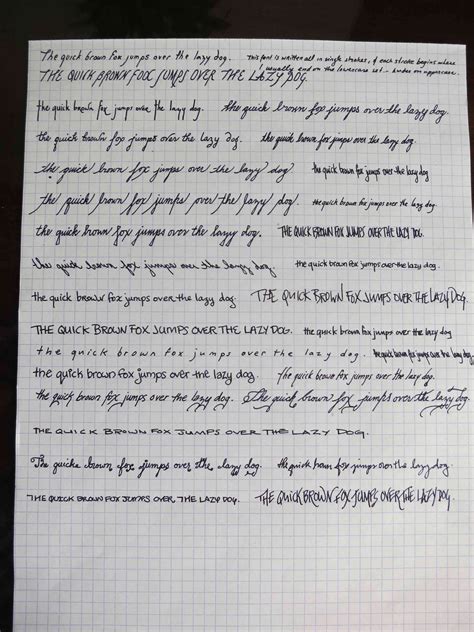 The quick brown fox jumps over the lazy dog. This font is written all in single strokes, & each stroke begins where
I usually end on the lowercase set... harder on uppercase.
THE QUICK BROWN FOOX JUMPS OVER THE LAZY DOG
the quick brown fox jumps over the lazy dog. the quick brown fox jumps over the lazy dog.
the quick brown fox jumps over the lazy dog. the quick brown fox jumps over the lazy dog.
the quick brown fox jumps over the lazy dog. the quick brown fox jumps over the lazy dog
the quick brown fox jumps over the lazy dog. the quick brown fox jumps over the lazy dog.
the quick brown fox jumps over the lazy dog. THE QUICK BROWN FOX JUMPS OVER THE LAZY DOG.
the quick brown fox jumps over the lazy dog. the quick brown fox jumps over the lazy dog.
the quick brown fox jumps over the lazy dog. THE QUICK BROWN FOX JUMPS OVER THE LAZY DOG.
THE QUICK BROWN FOX JUMPS OVER THE LAZY DOG. the quick brown fox jumps over the lazy dog
the quick brown fox jumps over the lazy dog. the quick brown fox jumps over the lazy dog
the quick brown fox jumps over the lazy dog. The quick brown fox jumps over the lazy dog.
the quick brown fox jumps over the lazy dog. The quick brown fox jumps over the lazy dog.
THE QUICK BROWN FOX JUMPS OVER THE LAZY DOG.
The quicke brown fox jumps over the lazy dog. the quick brown fox jumps over the lazy dog.
THE QUICK BROWN FOX JUMPS OVER THE LAZY DOG. THE QUICK BROWN FOX JUMPS OVER THE LAZY DOG.